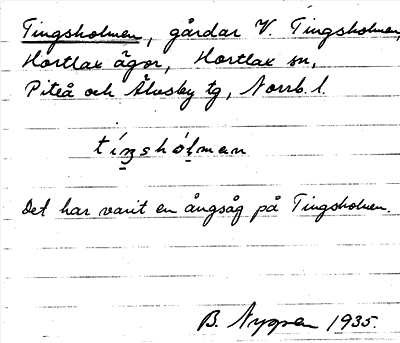 Tingsholmen, gårdar V. Tingsholmen,
Hortlax ägor, Hortlax sn,
Piteå och Älvsby tg, Norrb. l.
tíŋshólman
Det har varit en ångsåg på Tingsholmen.
B. Nygren 1935.